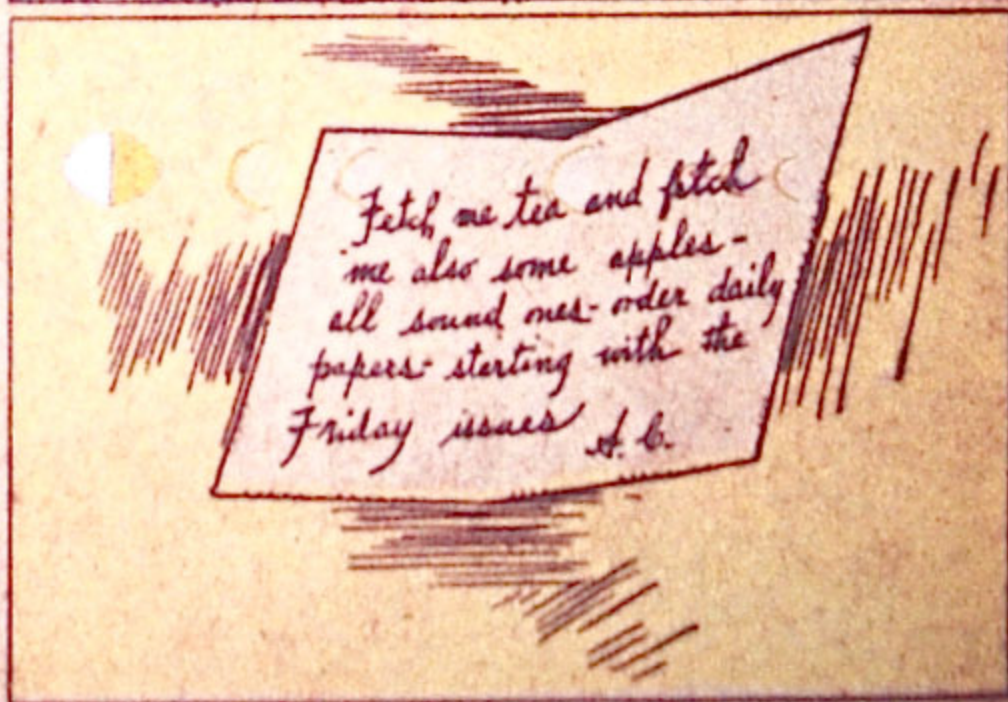 Fetch me tea and fetch
me also some apples-
all sound ones- order daily
papers- starting with the
Friday issues
A. C.